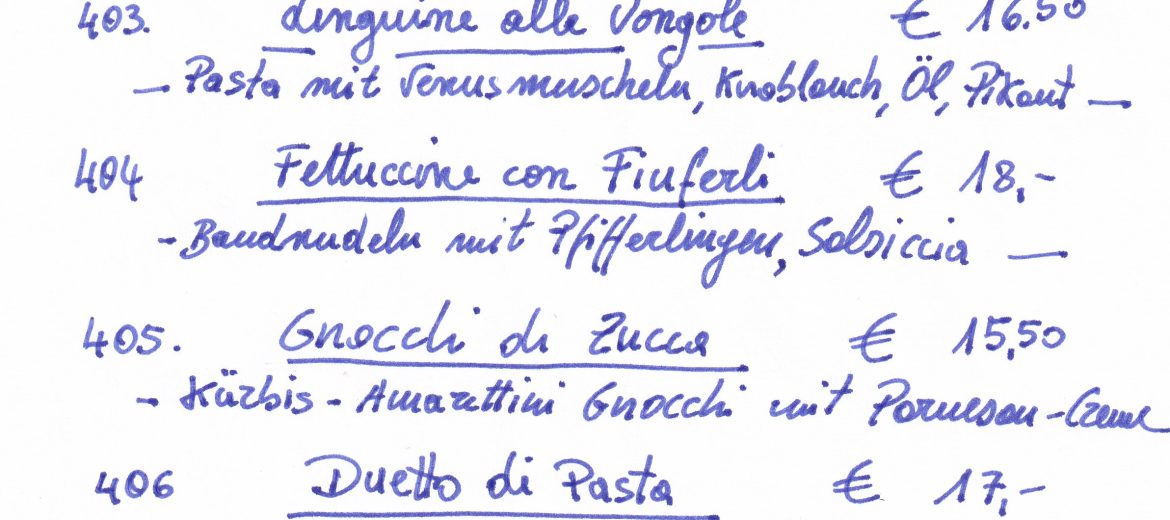 403. Linguine alle Vongole € 16.50
– Pasta mit Venusmuscheln, Knoblauch, Öl, Pikant –
404 Fettuccine con Finferli € 18,-
- Bandnudeln mit Pfifferlingen, Salsiccia –
405. Gnocchi di Zucca € 15,50
- Kürbis - Amarettini Gnocchi mit Parmesan - Creme
406 Duetto di Pasta € 17,-